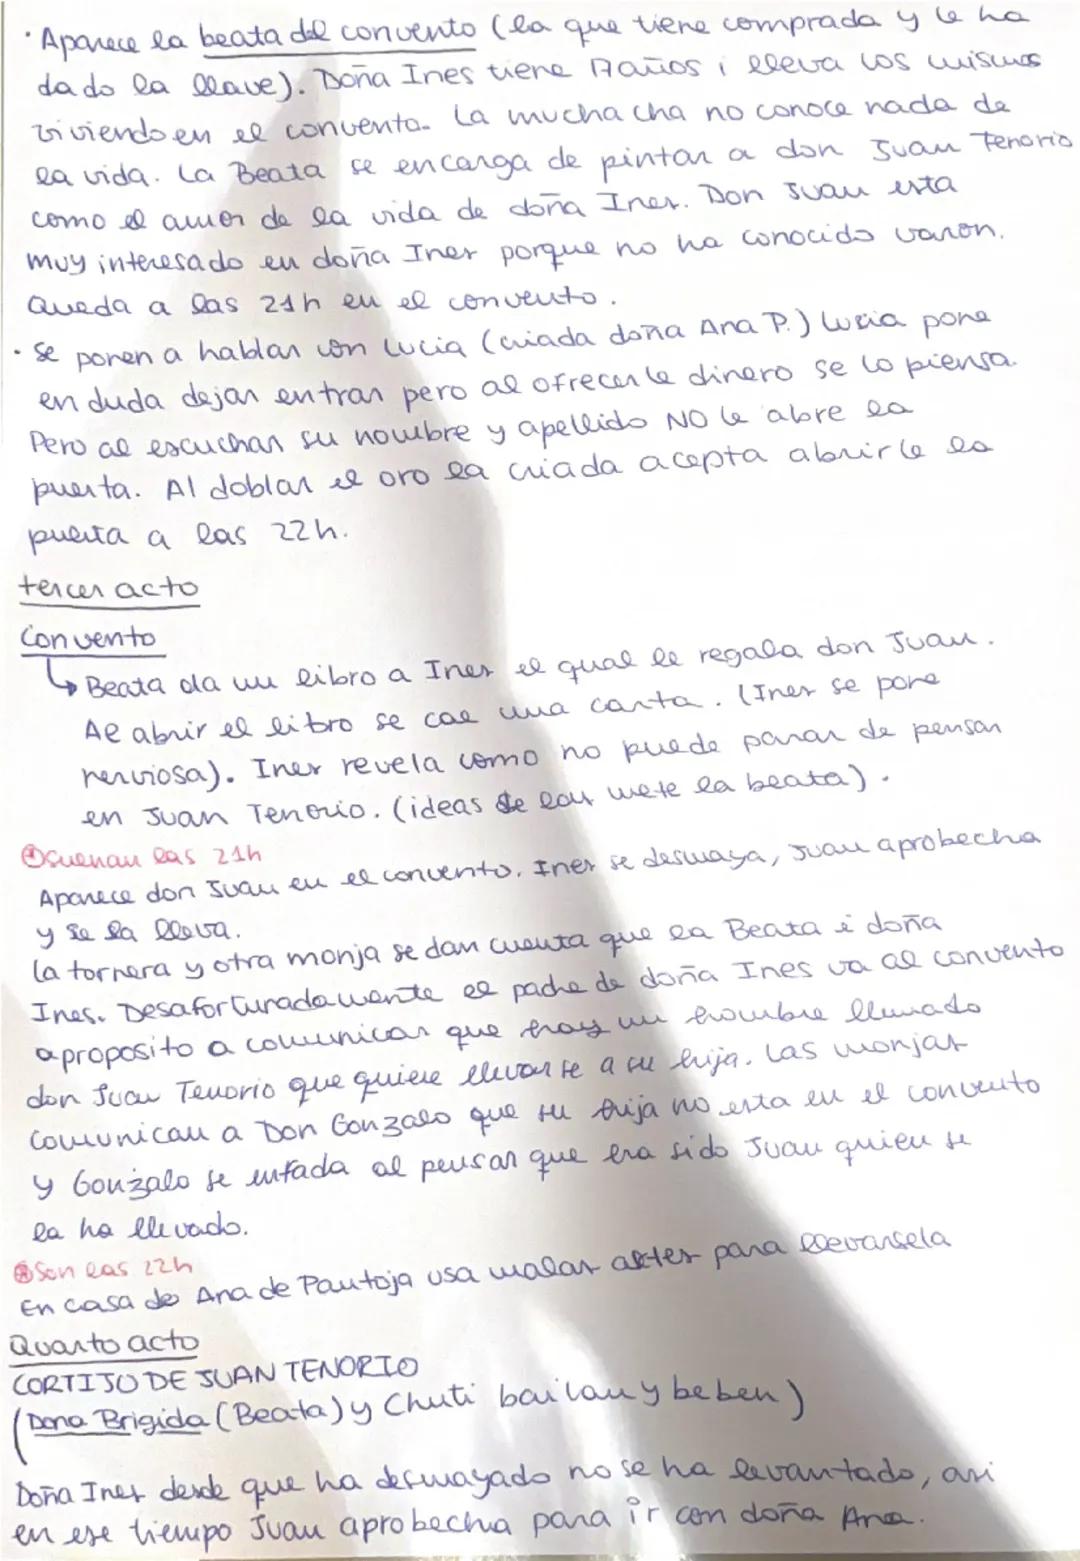 · Aparece la beata del convento (la que tiene comprada y le ha
dado la llave). Doña Ines tiene 17 años i lleva los mismos
viviendo en el convento. La muchacha no conoce nada de
la vida. La Beata se encarga de pintar a don Juan Tenorio
como el amor de la vida de doña Ines. Don Juan esta
muy interesado en doña Ines porque no ha conocido varon.
Queda a las 21h en el convento.
· Se ponen a hablar con Lucia (criada doña Ana P.) Lucia pone
en duda dejar entrar pero al ofrecerle dinero se lo piensa.
Pero al escuchar su nombre y apellido NO le abre la
puerta. Al doblar el oro la criada acepta abrirle la
puerta a las 22h.
tercer acto
Convento
↳ Beata da un libro a Ines el qual le regala don Juan.
Al abrir el libro se cae una carta. (Ines se pone
nerviosa). Ines revela como no puede parar de pensar
en Juan Tenorio. (ideas de las mete la beata).
Suenan las 21h
Aparece don Juan en el convento. Ines se desmaya, Juan aprobecha
y se la lleva.
La tornera y otra monja se dan cuenta que la Beata i doña
Ines. Desafortunadamente el padre de doña Ines va al convento
a proposito a comunicar que hay un hombre llamado
don Juan Tenorio que quiere llevarse a su hija. Las monjas
comunican a Don Gonzalo que su hija no esta en el convento
y Gonzalo se enfada al pensar que era sido Juan quien se
la ha llevado.
Son las 22h
En casa de Ana de Pantoja usa malas artes para llevarsela
Quarto acto
CORTIJO DE JUAN TENORIO
(Dona Brigida (Beata) y Chuti bailan y beben)
Doña Ines desde que ha desmayado no se ha levantado, asi
en ese tiempo Juan aprobecha para ir con doña Ana.